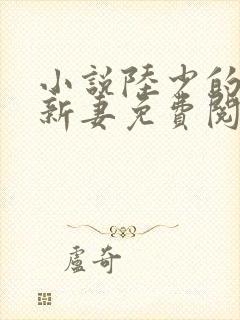 小説陸少的
新妻免費閱
盧奇